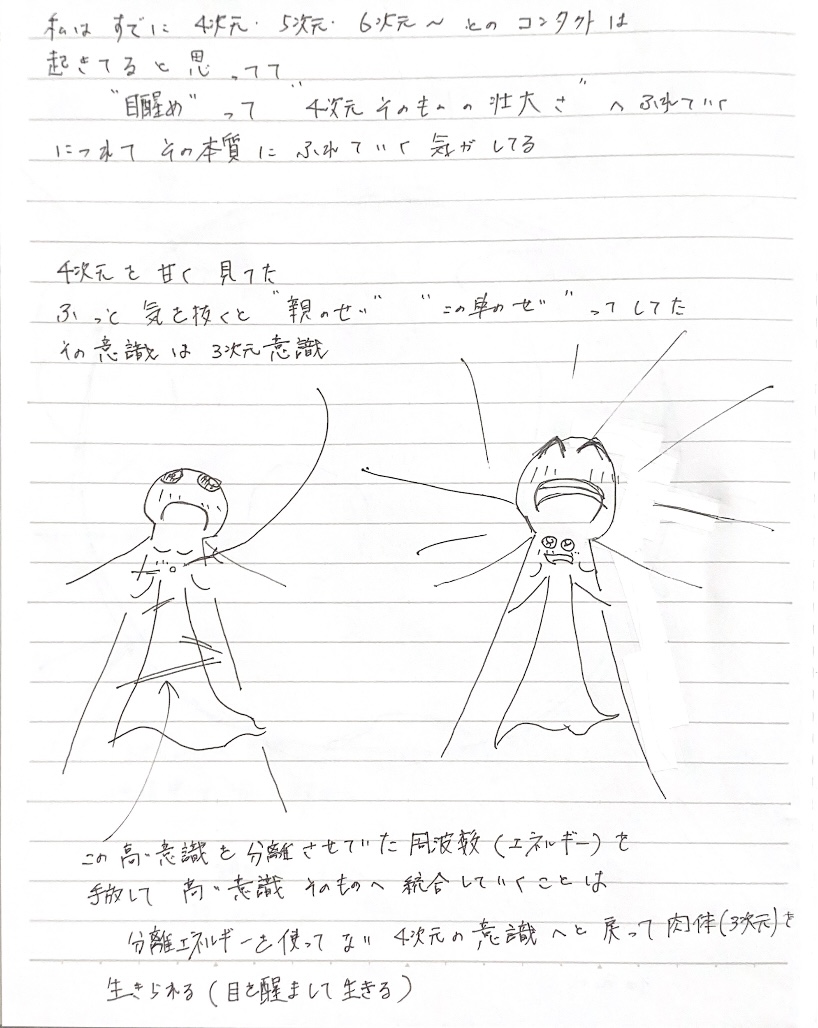 私は すでに 4次元・5次元・6次元〜 との コンタクトは
起きてる と 思 ってて
"目醒め" って "4次元 そのもの の 壮大 さ" へ ふれていく
につれて その本質に ふれていく 気が してる
4次元 を 甘く 見てた
ふっと 気を抜くと "親のせい" "この身のせい" ってしてた
その意識は 3次元意識
この 高い意識を 分離させていた 周波数(エネルギー)を
手放して 高い意識 そのものへ 統合していくことは
分離エネルギーを使って ない 4次元の意識へと 戻って 肉体(3次元)を
生きられる(目を醒まして生きる)